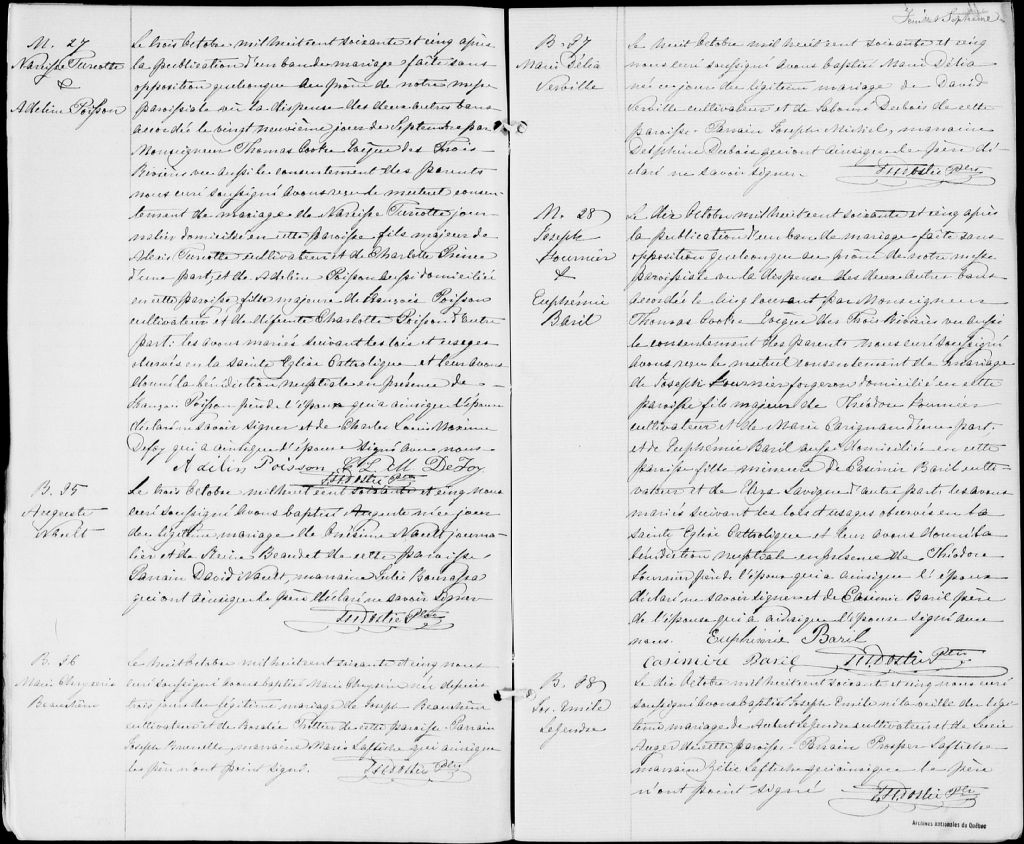 M. 27
Narcisse Turcotte
&
Adeline Poisson
Le trois Octobre mil huit cent soixante et cinq après
la publication d'un ban de mariage faite sans
opposition quelconque au prône de notre messe
paroissiale vu la dispense des deux autres bans
accordée le vingt neuvième jour de Septembre par
Monseigneur Thomas Cooke Evêque des Trois
Rivières vu aussi le consentement des parents
nous curé soussigné avons reçu le mutuel consen-
tement de mariage de Narcisse Turcotte jour-
nalier domicilié en cette paroisse fils majeur de
Alexis Turcotte cultivateur et de Charlotte Prince
d'une part, et de Adeline Poisson aussi domiciliée
en cette paroisse, fille majeure de François Poisson
cultivateur, et de défunte Charlotte Poisson d'autre
part: les avons mariés suivant les lois et usages
observés en la Sainte Eglise Catholique et leur avons
donné la bénédiction nuptiale en présence de
François Poisson père de l'épouse qui a ainsi que l'époux
déclaré ne savoir signer et de Charles Louis Maxime
Defoy qui a ainsi que l'épouse signé avec nous
Adeline Poisson C. L. M. DeFoy
Dostie Ptre
B. 95
Auguste
Nault
Le trois Octobre mil huit cent soixante et cinq nous
curé soussigné avons baptisé Auguste né ce jour
du légitime mariage de Onésime Nault journa-
lier et de Reine Beaudet de cette paroisse.
Parrain David Nault, marraine Julie Bourassa
qui ont ainsi que le père déclaré ne savoir signer
Dostie Ptre
B. 96
Marie
Beauchêne
Le huit Octobre mil huit cent soixante et cinq nous
curé soussigné avons baptisé Marie née depuis
trois jours du légitime mariage de Joseph Beauchêne
cultivateur et de Rosalie de cette paroisse. Parrain
Joseph Brunelle, marraine Marie Lafleche qui ainsi que
le père n'ont point signé.
Dostie Ptre
Feuillet Septième
B. 97
Marie Délia
Verville
Le huit Octobre mil huit cent soixante et cinq
nous curé soussigné avons baptisé Marie Délia
née ce jour du légitime mariage de David
Verville cultivateur et de Salomé Dubois de cette
paroisse. Parrain Joseph Michel, marraine
Delphine Dubois qui ont ainsi que le père dé-
claré ne savoir signer
Dostie Ptre
M. 28
Joseph
Fournier
&
Euphémie
Baril
Le dix Octobre mil huit cent soixante et cinq après
la publication d'un ban de mariage faite sans
opposition quelconque au prône de notre messe
paroissiale vu la dispense des deux autres bans
accordée le cinq courant par Monseigneur
Thomas Cooke Evêque des Trois Rivières vu aussi
le consentement des parents nous curé soussigné
avons reçu le mutuel consentement de mariage
de Joseph Fournier forgeron domicilié en cette
paroisse fils majeur de Théodore Fournier
cultivateur et de Marie Carignan d'une part;
et de Euphémie Baril aussi domiciliée en cette
paroisse fille mineure de Casimir Baril culti-
vateur et de Elize Lavigne d'autre part; les avons
mariés suivant les lois et usages observés en la
Sainte Eglise Catholique et leur avons donné la
bénédiction nuptiale en présence de Théodore
Fournier père de l'époux qui a ainsi que l'époux
déclaré ne savoir signer et de Casimir Baril père
de l'épouse qui a ainsi que l'épouse signé avec
nous. Euphémie Baril
Casimire Baril Dostie Ptre
B. 98
Jos. Emile
Legendre
Le dix Octobre mil huit cent soixante et cinq nous curé
soussigné avons baptisé Joseph Emile né la veille du légi-
time mariage de Aubert Legendre cultivateur et de Lucie
Auger de cette paroisse. Parrain Prosper Lafleche
marraine Zélie Lafleche qui ainsi que le père
n'ont point signé
Dostie Ptre
Archives nationales du Québec